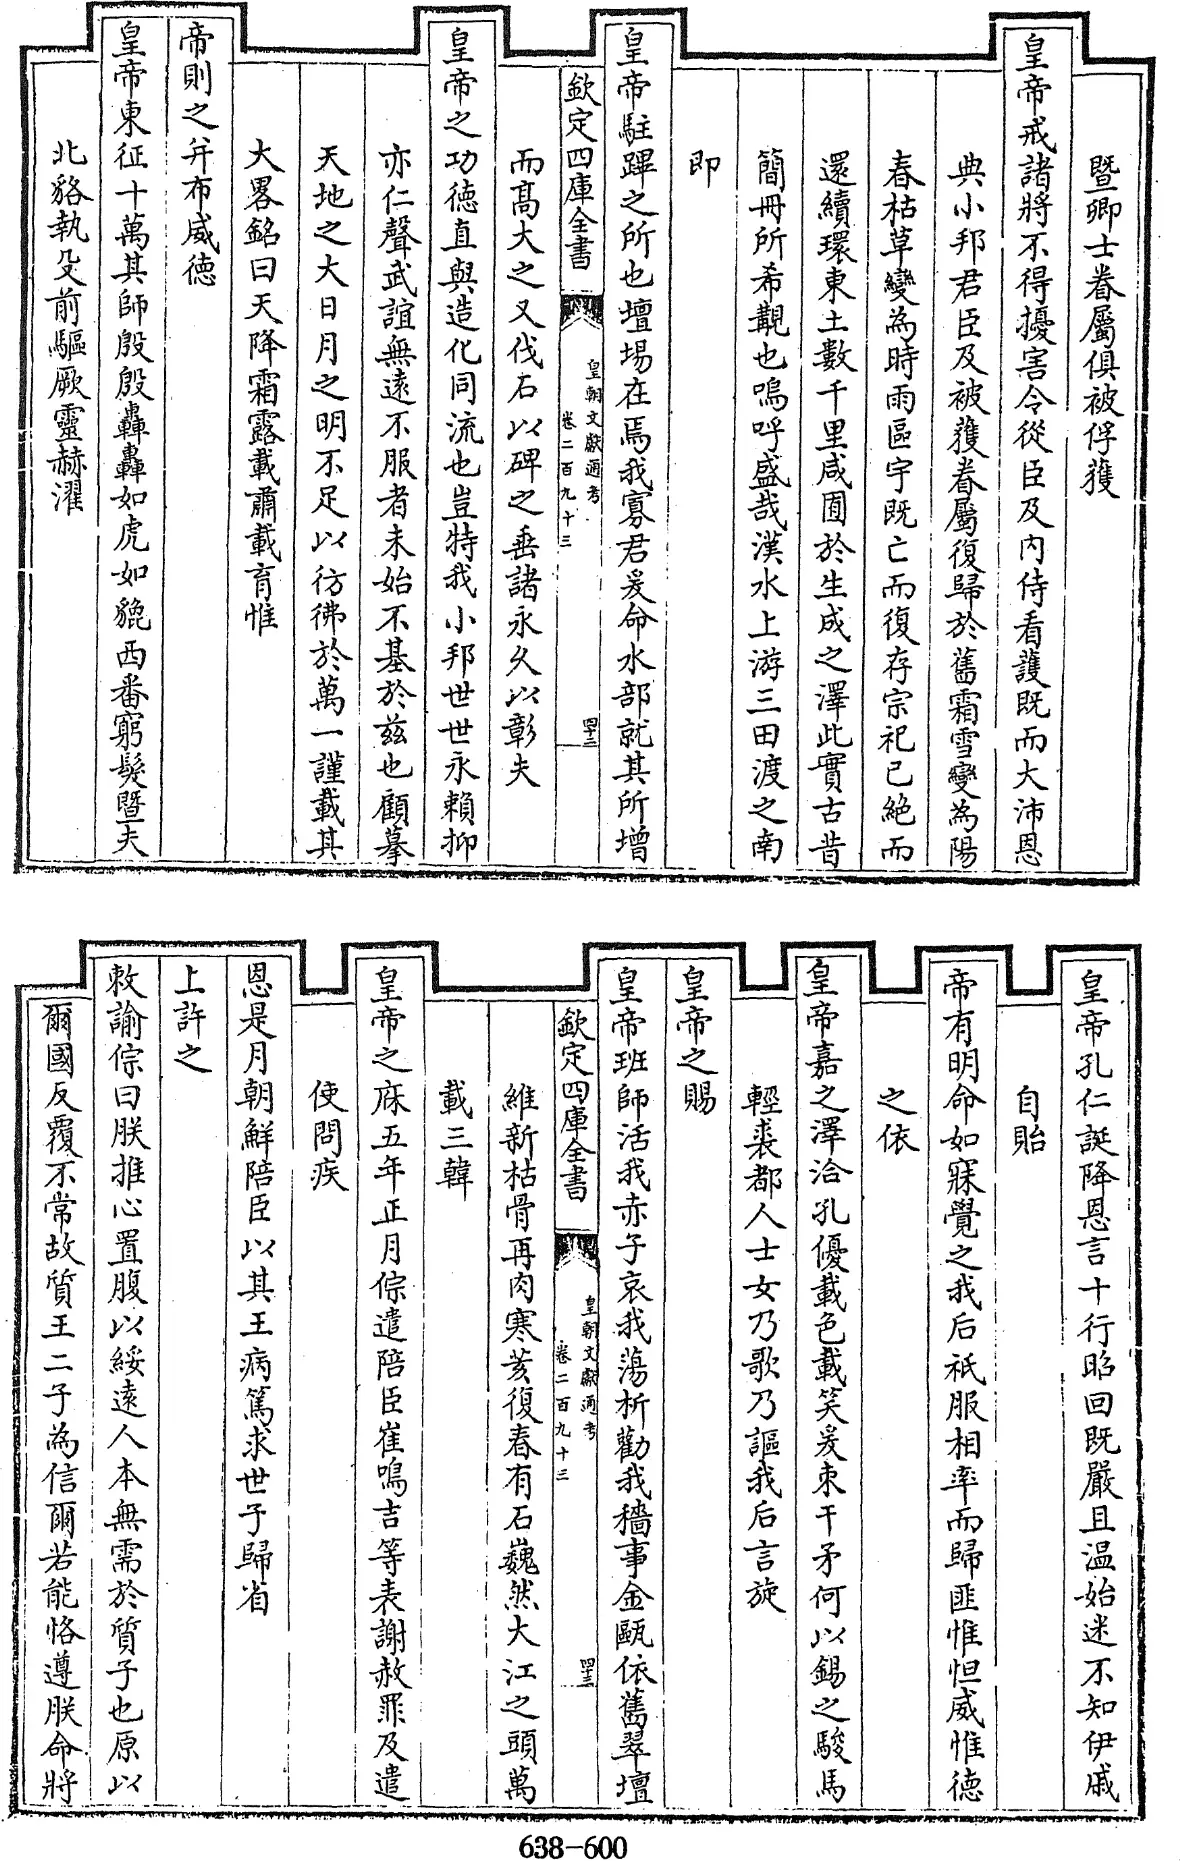 暨卿士眷屬俱被俘獲
皇帝戒諸將不得擾害令從臣及内侍看護既而大沛恩
典小邦君臣及被獲眷屬復歸於舊霜雪變為陽
春枯草變為時雨區宇既亡而復存宗祀已絶而
還續環東土數千里咸囿於生成之澤此實古昔
簡冊所希覯也嗚呼盛哉漢水上游三田渡之南
即
皇帝駐蹕之所也壇場在焉我寡君爰命水部就其所增
欽定四庫全書
皇朝文獻通考
卷二百九十三
四十三
而髙大之又伐石以碑之垂諸永久以彰夫
皇帝之功德直與造化同流也豈特我小邦世世永賴抑
亦仁聲武誼無遠不服者未始不基於兹也顧摹
天地之大日月之明不足以彷彿於萬一謹載其
大畧銘曰天降霜露載肅載育惟
帝則之并布威德
皇帝東征十萬其師殷殷轟轟如虎如貔西番窮髮暨夫
北貉執殳前驅厥靈赫濯
皇帝孔仁誕降恩言十行昭回既嚴且温始迷不知伊戚
自貽
帝有明命如寐覺之我后祇服相率而歸匪惟怛威惟德
之依
皇帝嘉之澤洽孔優載色載笑爰束干矛何以錫之駿馬
輕裘都人士女乃歌乃謳我后言旋
皇帝之賜
皇帝班師活我赤子哀我蕩析勸我穡事金甌依舊翠壇
欽定四庫全書
皇朝文獻通考
卷二百九十三
維新枯骨再肉寒荄復春有石巍然大江之頭萬
載三韓
皇帝之庥五年正月倧遣陪臣崔鳴吉等表謝赦罪及遣
使問疾
恩是月朝鮮陪臣以其王病篤求世子歸省
上許之
敕諭倧曰朕推心置腹以綏逺人本無需於質子也原以
爾國反覆不常故質王二子為信爾若能恪遵朕命將
638-600